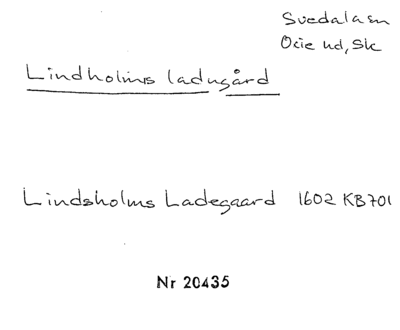 Svedala sn
Oxie hd, Sk
Lindholms ladugård
Lindsholms Ladegaard 1602 KB701
Nr 20435